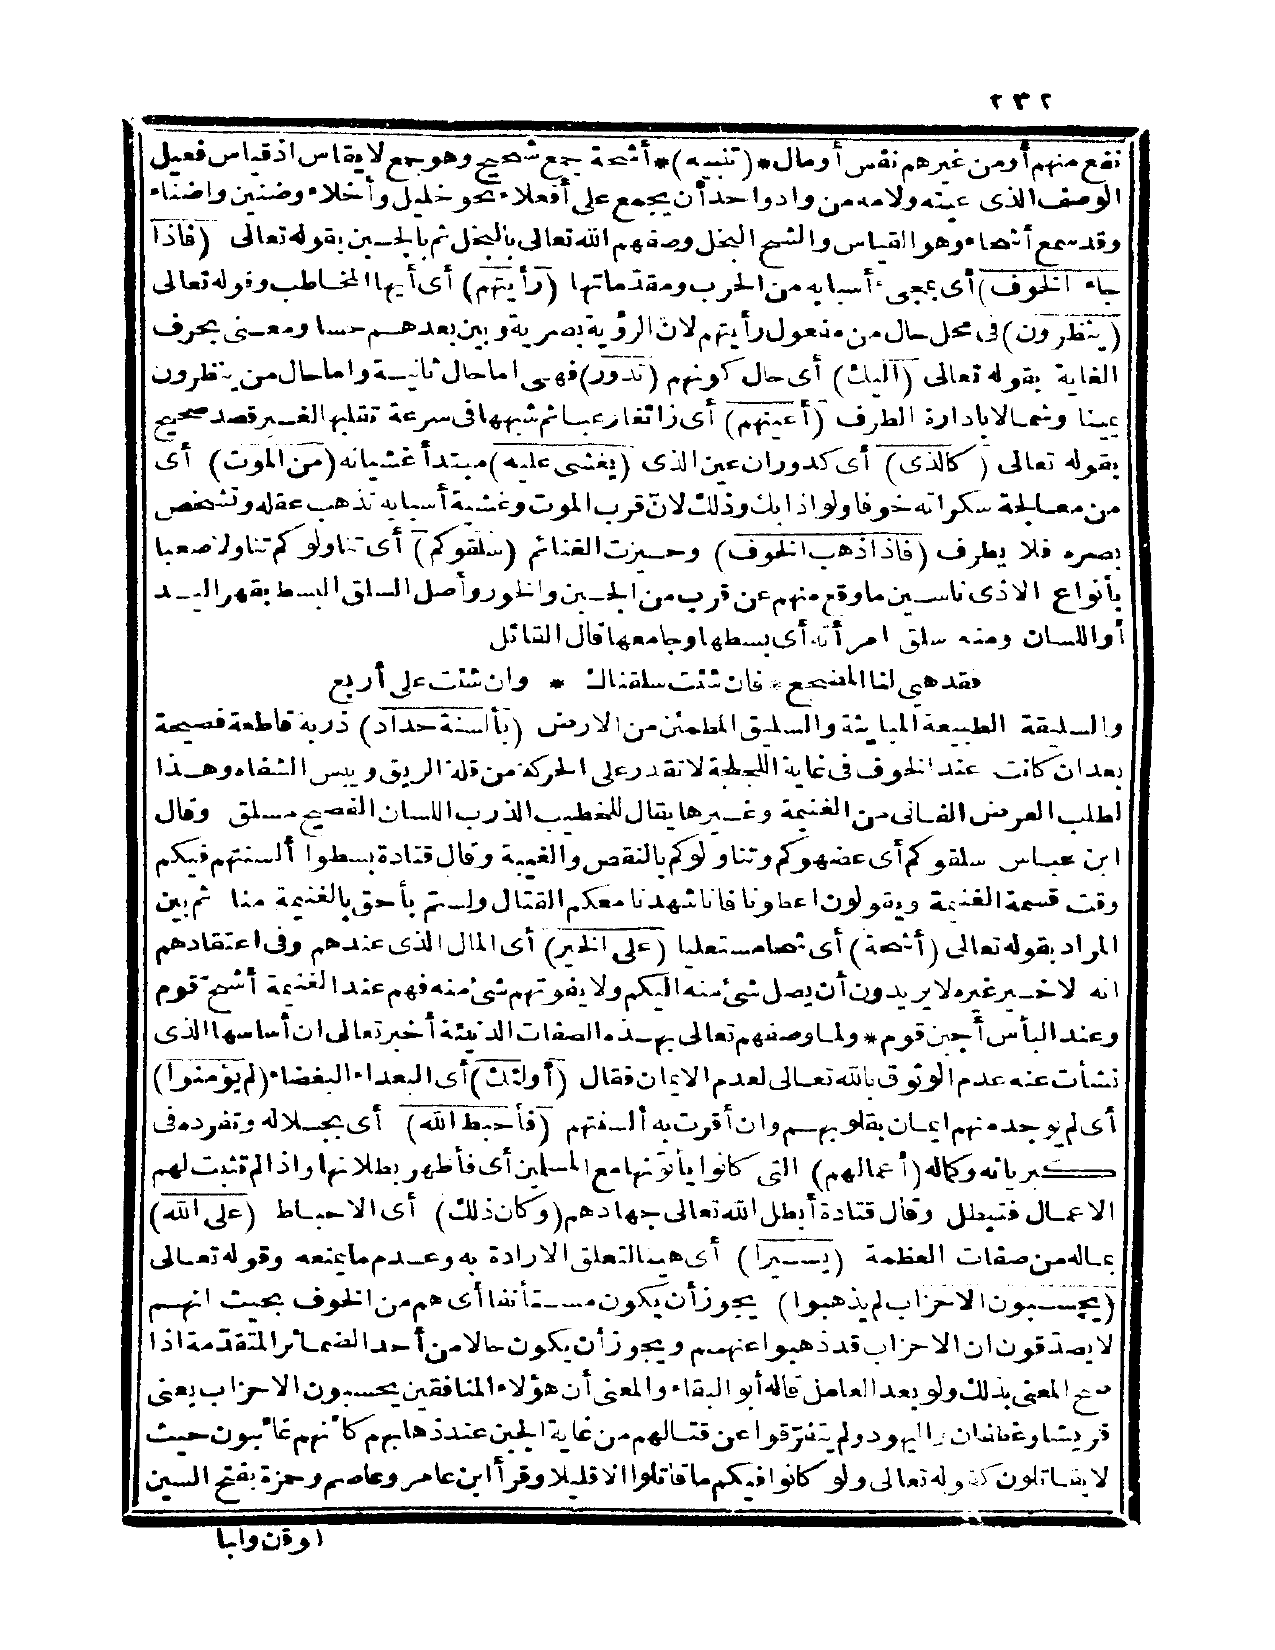 ٢٣٢
نفع منهم أو من غيرهم نفس أو مال * (تنبيه) * أشحة جمع شحيح وهو جمع لا يقاس اذ قياس فعيل
الوصف الذى عينه ولامه من واد واحد أن يجمع على أفعلاء نحو خليل وأخلاء وضنين واضناء
وقد سمع أشحاء وهو القياس والشح البخل وصفهم الله تعالى بالبخل ثم بالجبن بقوله تعالى (فاذا
جاء الخوف) أى بمجىء أسبابه من الحرب ومقدماتها (رأيتهم) أى أيها المخاطب وقوله تعالى
(ينظرون) فى محل حال من مفعول رأيتهم لان الرؤية بصرية وبين بعدهم حسا ومعنى بحرف
الغاية بقوله تعالى (اليك) أى حال كونهم (تدور) فهى اما حال ثانية واما حال من ينظرون
يمينا وشمالا بادارة الطرف (أعينهم) أى زائغا رعبا ثم شبهها فى سرعة تقلبها لغير قصد صحيح
بقوله تعالى (كالذى) أى كدوران عين الذى (يغشى عليه) مبتدأ غشيانه (من الموت) أى
من معالجة سكراته خوفا ولواذا بك وذلك لانّ قرب الموت وغشية أسبابه تذهب عقله وتشخص
بصره فلا يطرف (فاذا ذهب الخوف) وحيزت الغنائم (سلقوكم) أى تناولوكم تناولا صعبا
بأنواع الاذى ناسين ما وقع منهم عن قرب من الجبن والخور وأصل السلق البسط بقهر اليد
أو اللسان ومنه سلق امرأته أى بسطها وجامعها قال القائل
فقد هي لنا المضجع * فان شئت سلقناك * وان شئت على أربع
والسليقة الطبيعة المباينة والسليق المطمئن من الارض (بألسنة حداد) ذربة قاطعة فصيحة
بعد ان كانت عند الخوف فى غاية اللجلجة لا تقدر على الحركة من قلة الريق ويبس الشفاه وهذا
لطلب العرض الفانى من الغنيمة وغيرها يقال للخطيب الذرب اللسان الفصيح مسلق وقال
ابن عباس سلقوكم أى عضهوكم وتناولوكم بالنقص والغيبة وقال قتادة بسطوا ألسنتهم فيكم
وقت قسمة الغنيمة ويقولون اعطونا فانا شهدنا معكم القتال ولستم بأحق بالغنيمة منا ثم بين
المراد بقوله تعالى (أشحة) أى شحا مستعليا (على الخير) أى المال الذى عندهم وفى اعتقادهم
انه لا خير غيره لا يريدون أن يصل شئ منه اليكم ولا يفوتهم شئ منه فهم عند الغنيمة أشح قوم
وعند البأس أجبن قوم * ولما وصفهم تعالى بهذه الصفات الدنيئة أخبر تعالى ان أساسها الذى
نشأت عنه عدم الوثوق بالله تعالى لعدم الايمان فقال (أولئك) أى البعداء البغضاء (لم يؤمنوا)
أى لم يوجد منهم ايمان بقلوبهم وان أقرت به ألسنتهم (فأحبط الله) أى بجلاله وتفرده فى
كبريائه وكماله (أعمالهم) التى كانوا يأتونها مع المسلمين أى فأظهر بطلانها واذ لم تثبت لهم
الاعمال فتبطل وقال قتادة أبطل الله تعالى جهادهم (وكان ذلك) أى الاحباط (على الله)
بماله من صفات العظمة (يسيرا) أى هينا لتعلق الارادة به وعدم ما يمنعه وقوله تعالى
(يحسبون الاحزاب لم يذهبوا) يجوز أن يكون مستأنفا أى هم من الخوف بحيث انهم
لا يصدقون ان الاحزاب قد ذهبوا عنهم ويجوز أن يكون حالا من أحد الضمائر المتقدمة اذا
صح المعنى بذلك ولو بعد العامل قاله أبو البقاء والمعنى أن هؤلاء المنافقين يحسبون الاحزاب يعنى
قريشا وغطفان واليهود ولم يتفرّقوا عن قتالهم من غاية الجبن عند ذهابهم كأنهم غائبون حيث
لا يقاتلون كقوله تعالى ولو كانوا فيكم ما قاتلوا الا قليلا وقرأ ابن عامر وعاصم وحمزة بفتح السين